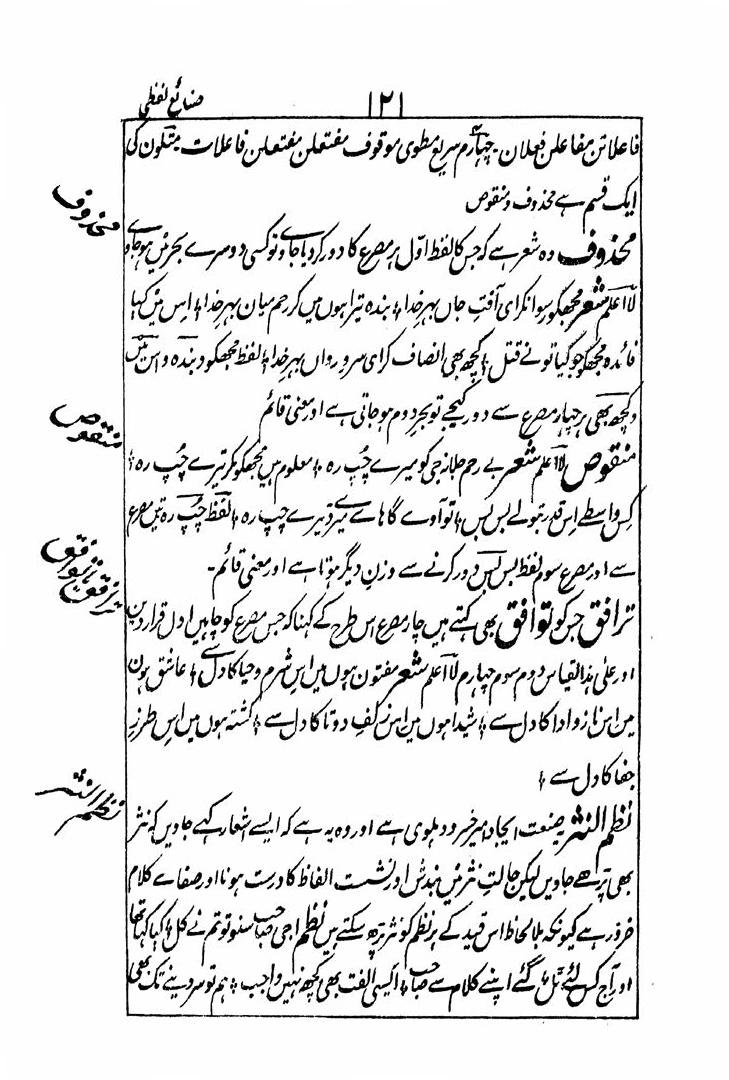 صنائع لفظی
۱۲۱
فاعلاتن مفاعلن فعلان ۔ چہارم سریع مطوی موقوف مفتعلن مفتعلن فاعلات متلون کی
ایک قسم ہے محذوف و منقوص
محذوف
محذوف وہ شعر ہے کہ جس کا لفظ اوّل ہر مصرع کا دور کر دیا جاوے تو کسی دوسرے بحر میں ہو جاوے
لا اعلم شعر مجھکو رسوا نکر ای آفتِ جاں بہرِ خدا ؛ بندہ تیرا ہوں میں کر رحم میاں بہرِ خدا ؛ اس میں کیا
فائدہ مجھکو جو کیا تو نے قتل ؛ کچھ بھی انصاف کر ای سرو رواں بہرِ خدا ؛ لفظ مجھکو و بندہ و اس میں
و کچھ بھی ہر چہار مصرع سے دور کیجیے تو بحر دوم ہو جاتی ہے اور معنی قائم
منقوص
منقوص لا اعلم شعر بے رحم جلا نہ جی کو میرے چُپ رہ ؛ معلوم ہیں مجھکو مکر تیرے چُپ رہ ؛
کس واسطے اس قدر تو بولے بس بس ؛ تو آوے گا ہاے میرے ڈیرے چپ رہ ؛ لفظ چُپ رہ تین مصرع
سے اور مصرع سوم لفظ بس بس دور کرنے سے وزن دیگر ہوتا ہے اور معنی قائم ۔
ترافق توافق
ترافق جس کو توافق بھی کہتے ہیں چار مصرع اس طرح کے کہنا کہ جس مصرع کو چاہیں اول قرار دیں
اور علیٰ ہذا القیاس دوم سوم چہارم لا اعلم شعر مفتون ہوں میں اس شرم و حیا کا دل سے ؛ عاشق ہون
میں اس ناز و ادا کا دل سے ؛ شیدا ہوں میں اس زلف دوتا کا دل سے ؛ کشتہ ہوں میں اس طرزِ
جفا کا دل سے ؛
نظم النثر
نظم النثر یہ صنعت ایجاد امیر خسرو دہلوی ہے اور وہ یہ ہے کہ ایسے اشعار کہے جاویں کہ نثر
بھی پڑھے جاویں لیکن حالتِ نثر میں بندش اور نشست الفاظ کا درست ہونا اور صفاے کلام
ضرور ہے کیونکہ بلا لحاظ اس قید کے ہر نظم کو نثر پڑھ سکتے ہیں نظم اجی صاحب سنو تو تم نے کل ؛ کیا کہا تھا
اور آج کس لئے ٹل ؛ گئے اپنے کلام سے صاحب ؛ ایسی الفت بھی کچھ نہیں واجب ؛ ہم تو سر دینے تک بھی